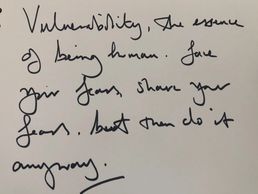 Vulnerability, the essence
of being human. Face
your fears, share your
fears, but then do it
anyway.